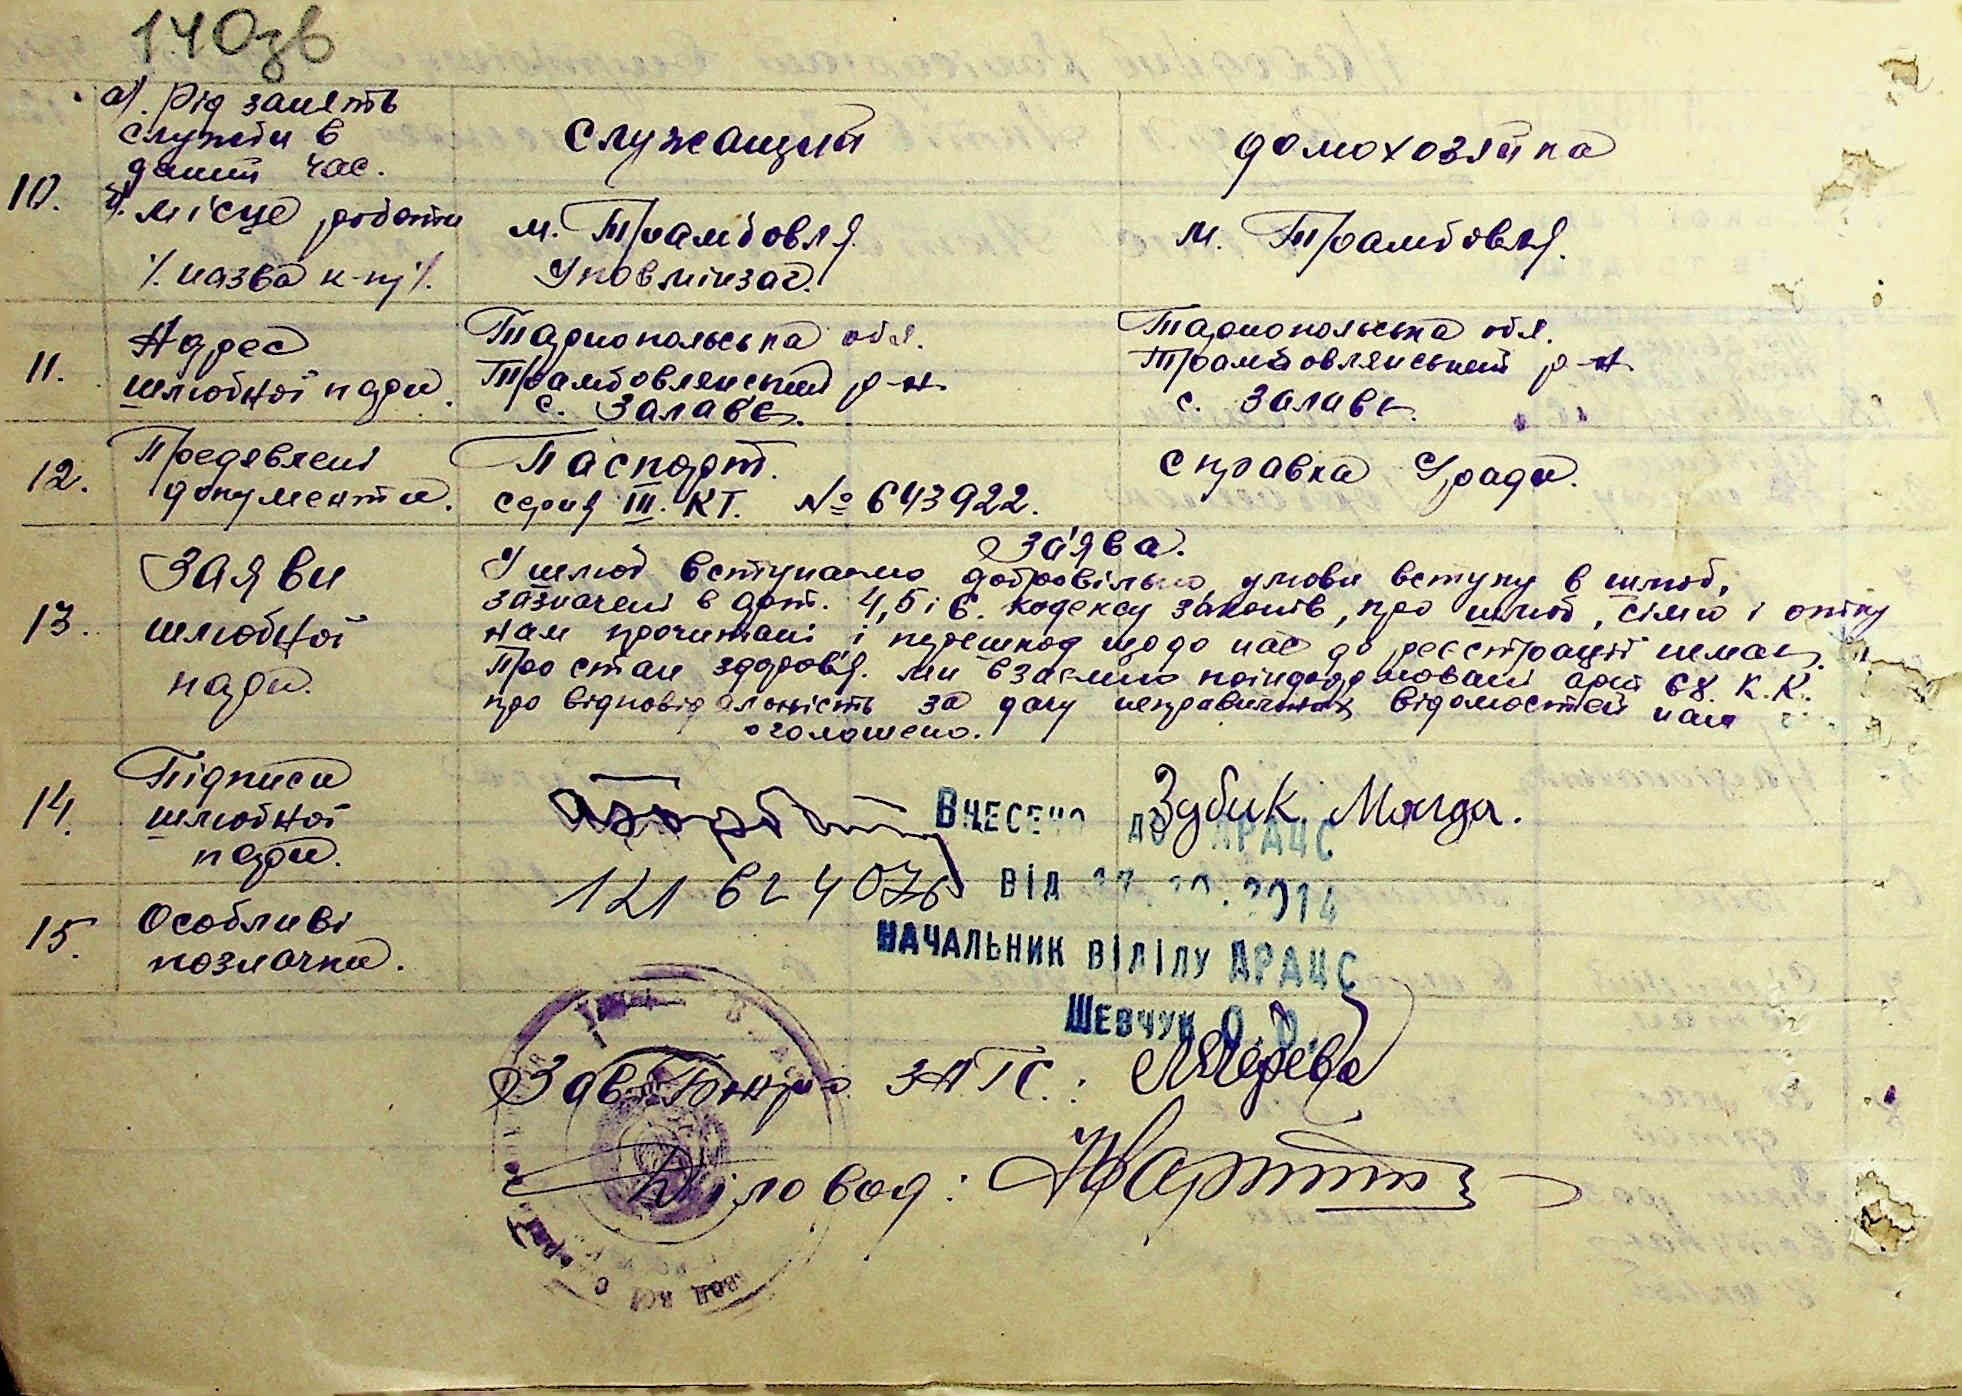 140зв
а/. Рід занять
служби в
даний час.
служащий
домохозяйка
10.
б/. місце роботи
/. назва к-ці/.
м. Трамбовля.
Уповмінзаг.
м. Трамбовля.
11.
Адрес
шлюбної пари.
Тарнопольська обл.
Трамбовлянський р-н
с. Залавє.
Тарнопольська обл.
Трамбовлянський р-н
с. Залавє.
12.
Предявлені
документи.
Паспорт.
серия III. КТ. № 643922.
справка Уради.
13.
Заяви
шлюбної
пари.
За'ява.
У шлюб вступаємо добровільно, умови вступу в шлюб,
зазначені в арт. 4, 5 і 6. кодексу законів, про шлюб, сімю і опіку
нам прочитані і перешкод щодо нас до реєстрації немає.
Про стан здоров'я. ми взаємно поінформовані арт 68. К.К.
про відповідальність за дачу неправичних відомостей нам
оголошено.
14.
Підписи
шлюбної
пари.
Зубик Магда.
15.
Особливі
позначки.
Внесено до ДРАЦС
від 2014
Начальник відділу ДРАЦС
Шевчук О.О.
Зав. Бюро ЗАГС:
Діловод: